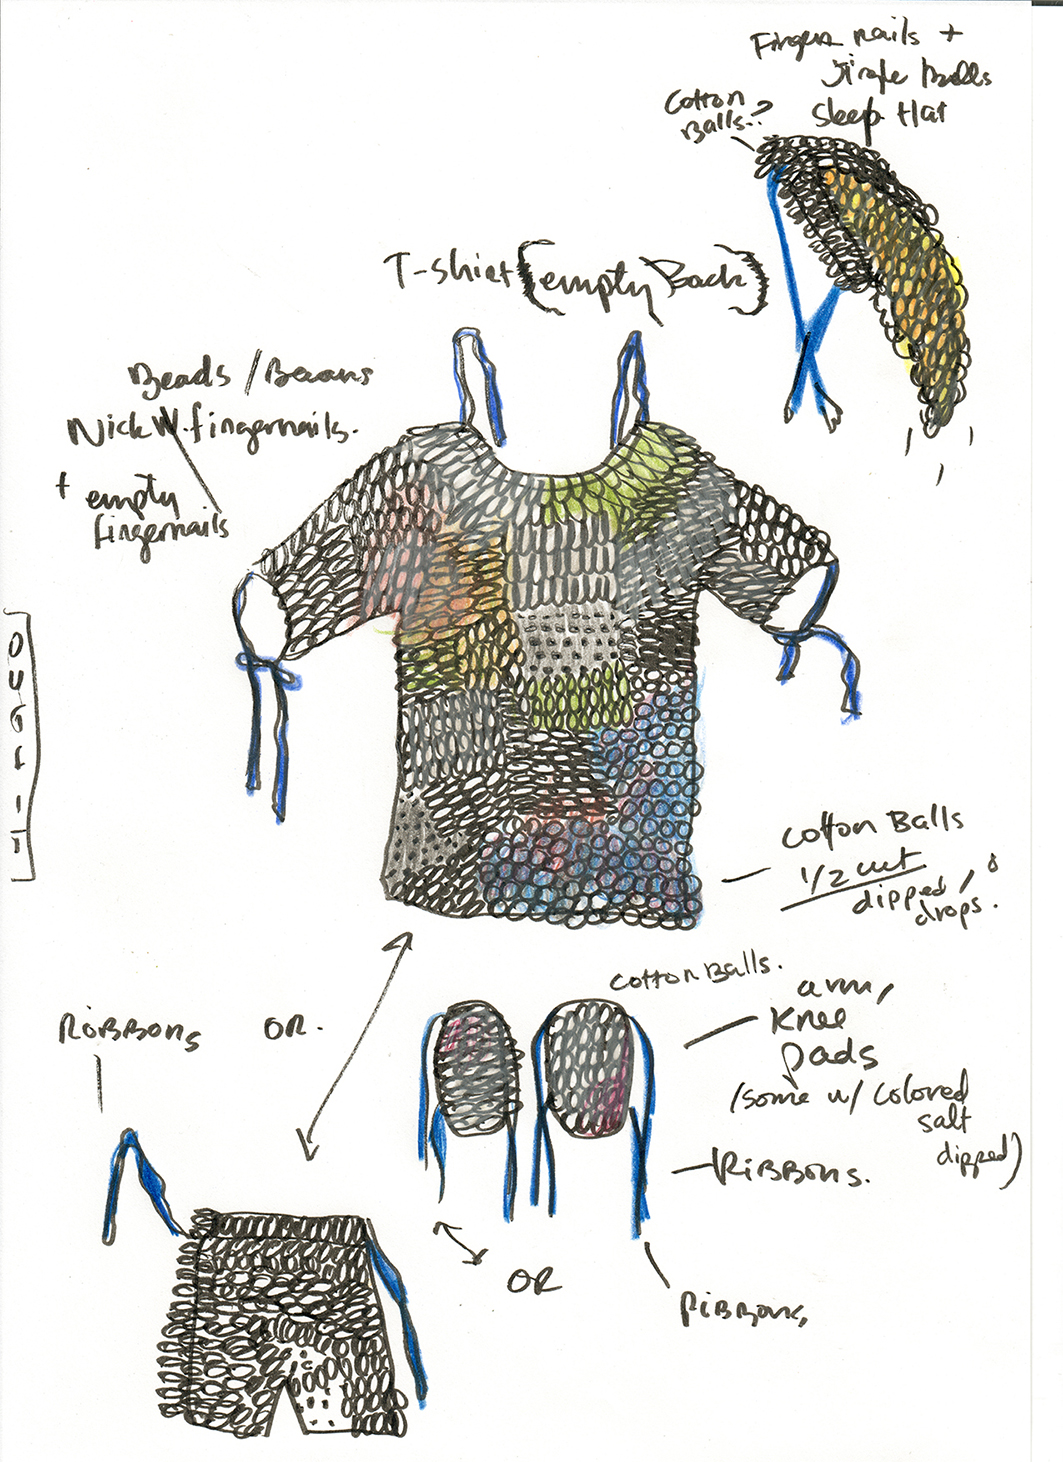 Finger nails +
Balls
Sleep Hat
Cotton
Balls?
T-shirt (empty Back)
Beads / Beans
Nick W. fingernails.
+ empty
fingernails
Cotton Balls
1/2 cut
dipped /
drops.
Cotton Balls.
arm,
Knee
pads
(some w/ colored
salt
dipped)
Ribbons.
Ribbons,
OR
Ribbons
OR.